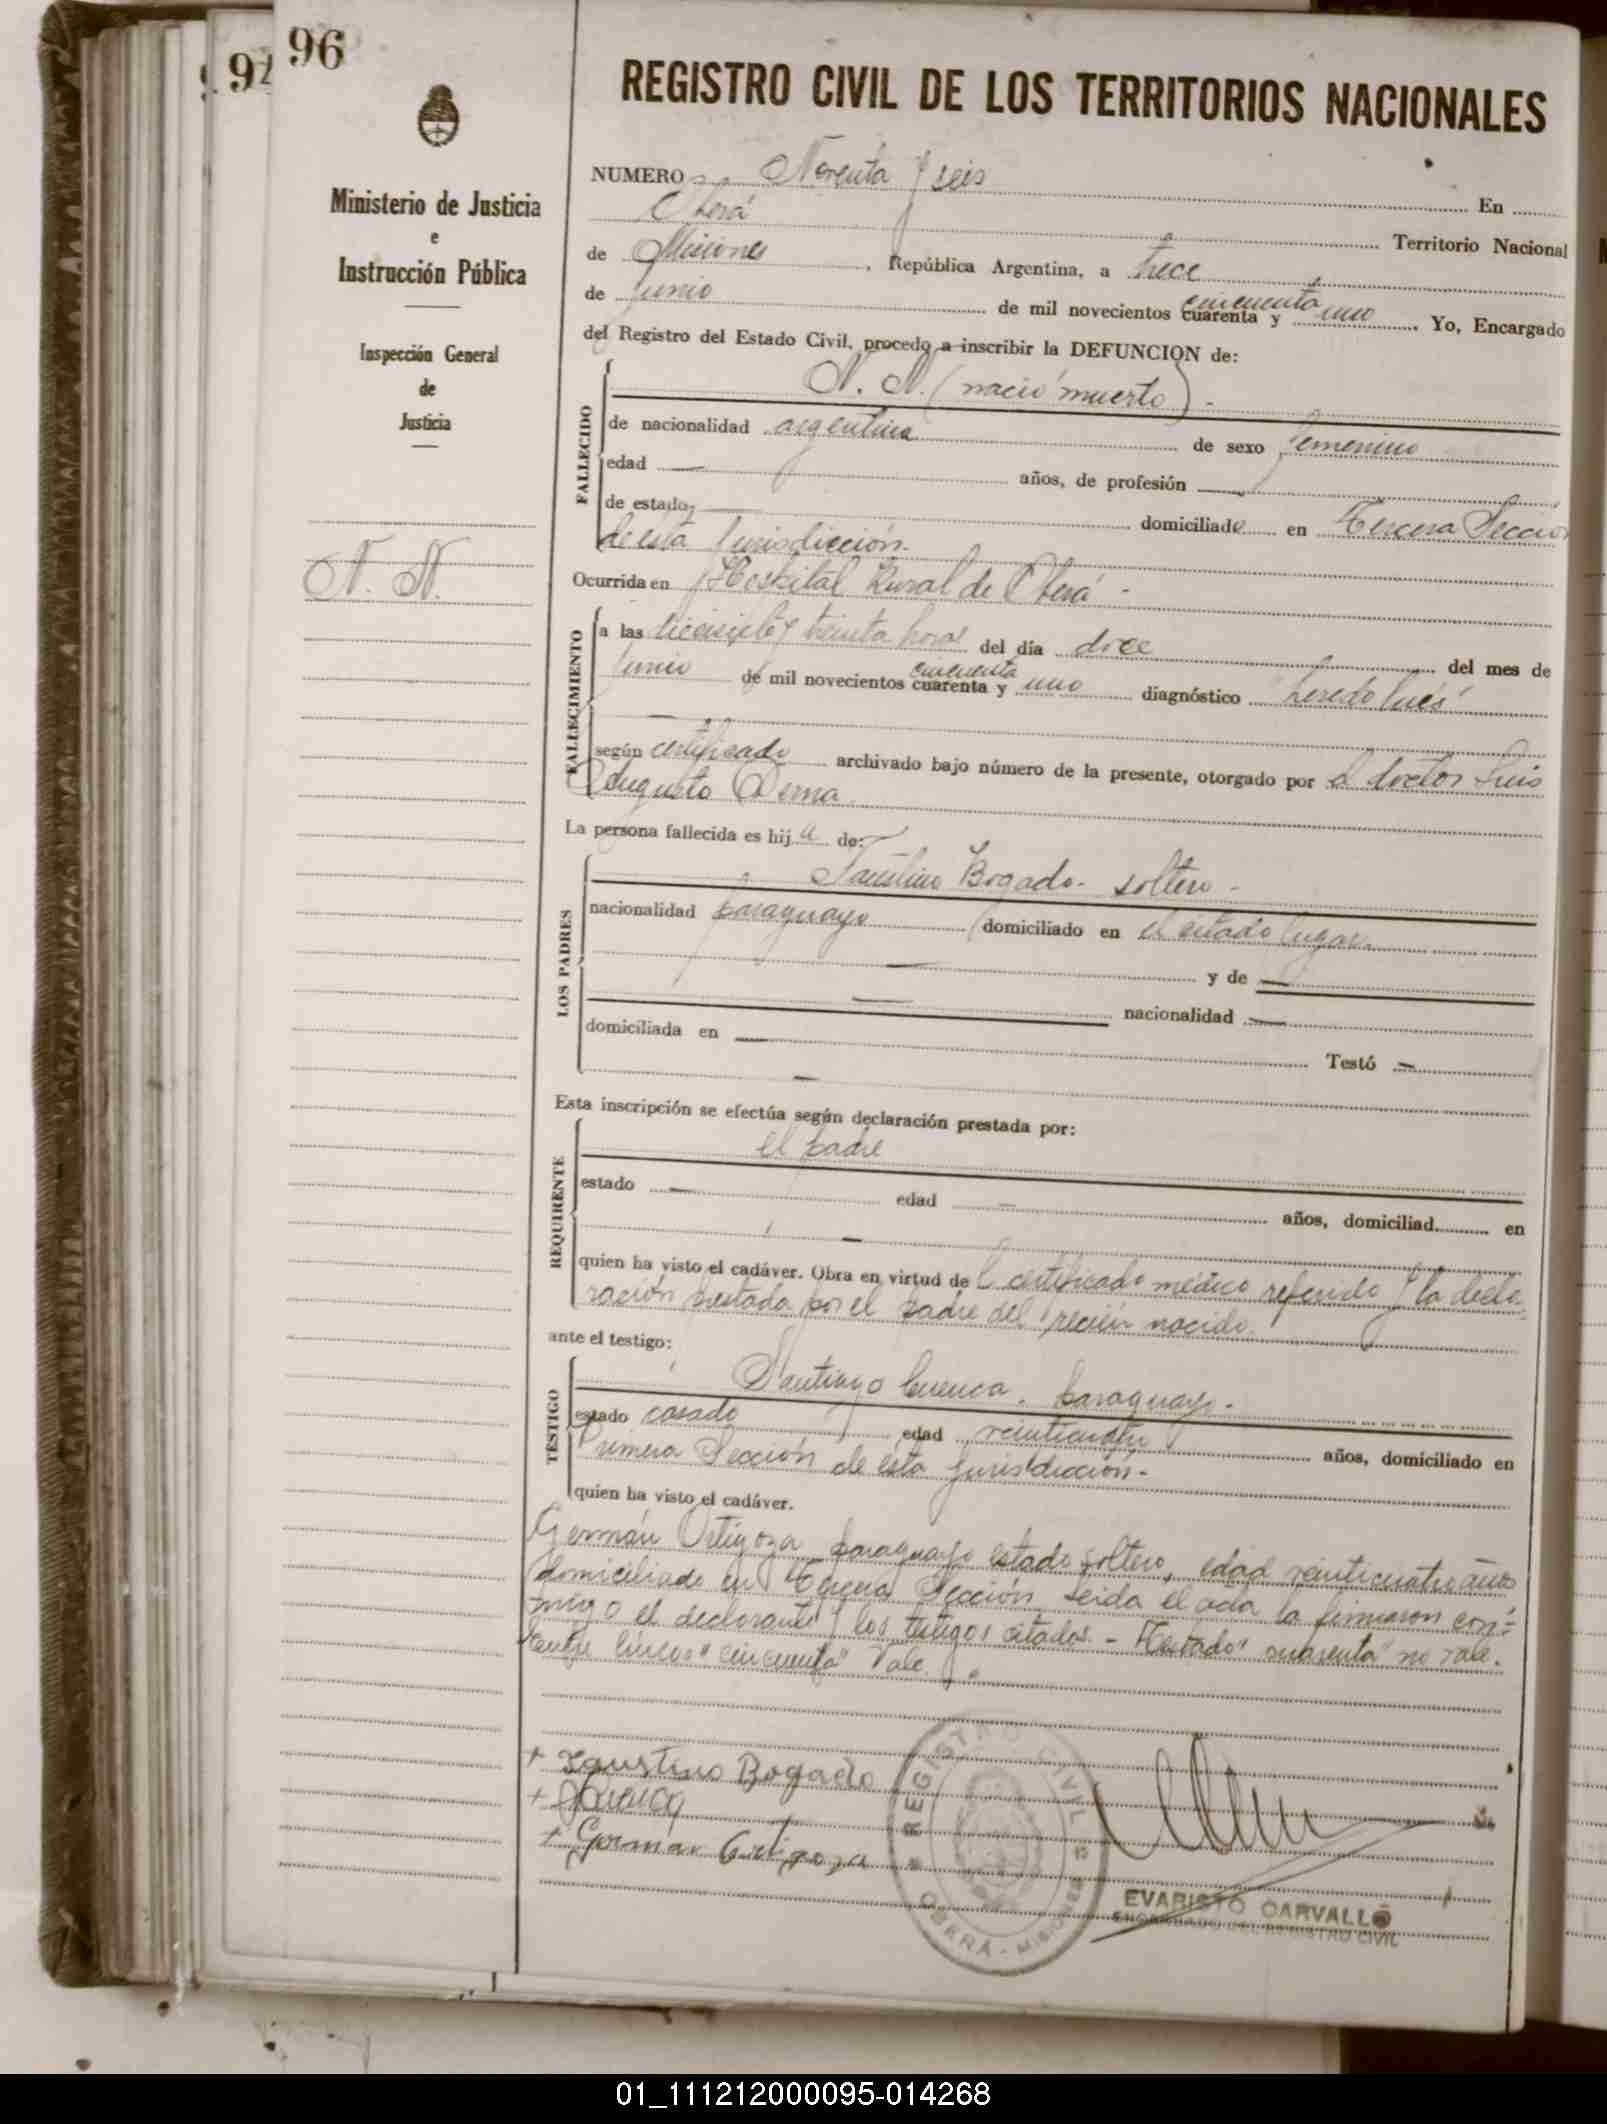 96
94
REGISTRO CIVIL DE LOS TERRITORIOS NACIONALES
Ministerio de Justicia
e
Instrucción Pública
Inspección General
de
Justicia
N. N.
NUMERO Noventa y seis En
Oberá Territorio Nacional
de Misiones, República Argentina, a trece
de junio de mil novecientos cuarenta y cincuenta uno. Yo, Encargado
del Registro del Estado Civil, procedo a inscribir la DEFUNCION de:
FALLECIDO
N. N. (nació muerto).-
de nacionalidad argentina de sexo femenino
edad — años, de profesión —
de estado — domiciliade en Tercera Sección
de ésta Jurisdicción.
Ocurrida en Hospital Rural de Oberá -
FALLECIMIENTO
a las y treinta horas del día doce del mes de
junio de mil novecientos cuarenta y cincuenta uno diagnóstico "heredo lues"
según certificado archivado bajo número de la presente, otorgado por el doctor Luis
Augusto Derna
La persona fallecida es hija de:
LOS PADRES
Faustino Bogado- soltero -
nacionalidad paraguayo domiciliado en el citado lugar.
— y de —
— nacionalidad —
domiciliada en — Testó —
—
Esta inscripción se efectúa según declaración prestada por:
REQUIRENTE
el padre
estado — edad — años, domiciliad en
—
quien ha visto el cadáver. Obra en virtud del certificado médico referido y la decla-
ración prestada por el padre del recién nacido.
ante el testigo:
TESTIGO
Santiago Cuenca. paraguayo.-
estado casado edad veinticuatro años, domiciliado en
Primera Sección de ésta jurisdicción.-
quien ha visto el cadáver.
Germán Ortigoza paraguayo estado soltero, edad veinticuatro años
domiciliado en Tercera Sección. Leida el acta la firmaron con-
migo el declarante y los testigos citados.- Testado "cuarenta" no vale.
Entre lineas "cincuenta" Vale.
+ Faustino Bogado
+ German Ortigoza
REGISTRO CIVIL
OBERÁ - MISIONES
EVARISTO CARVALLO
ENCARGADO DEL REGISTRO CIVIL
01_111212000095-014268